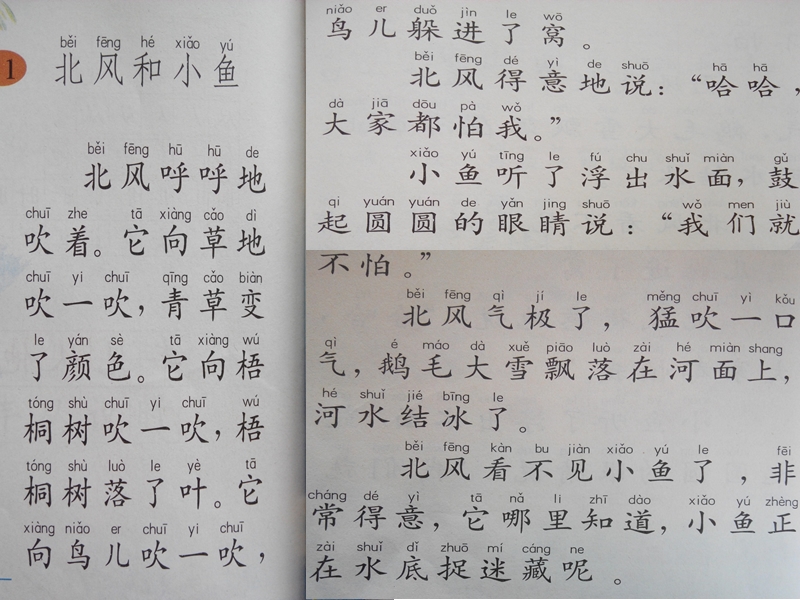 1
běi fēng hé xiǎo yú
北风和小鱼
běi fēng hū hū de
北风呼呼地
chuī zhe tā xiàng cǎo dì
吹着。它向草地
chuī yi chuī qīng cǎo biàn
吹一吹，青草变
le yán sè tā xiàng wú
了颜色。它向梧
tóng shù chuī yi chuī wú
桐树吹一吹，梧
tóng shù luò le yè tā
桐树落了叶。它
xiàng niǎo er chuī yi chuī
向鸟儿吹一吹，
niǎo er duǒ jìn le wō
鸟儿躲进了窝。
běi fēng dé yì de shuō hā hā
北风得意地说：“哈哈，
dà jiā dōu pà wǒ
大家都怕我。”
xiǎo yú tīng le fú chu shuǐ miàn gǔ
小鱼听了浮出水面，鼓
qi yuán yuán de yǎn jing shuō wǒ men jiù
起圆圆的眼睛说：“我们就
不怕。”
běi fēng qì jí le měng chuī yì kǒu
北风气极了，猛吹一口
qì é máo dà xuě piāo luò zài hé miàn shang
气，鹅毛大雪飘落在河面上，
hé shuǐ jié bīng le
河水结冰了。
běi fēng kàn bu jiàn xiǎo yú le fēi
北风看不见小鱼了，非
cháng dé yì tā nǎ li zhī dào xiǎo yú zhèng
常得意，它哪里知道，小鱼正
zài shuǐ dǐ zhuō mí cáng ne
在水底捉迷藏呢。